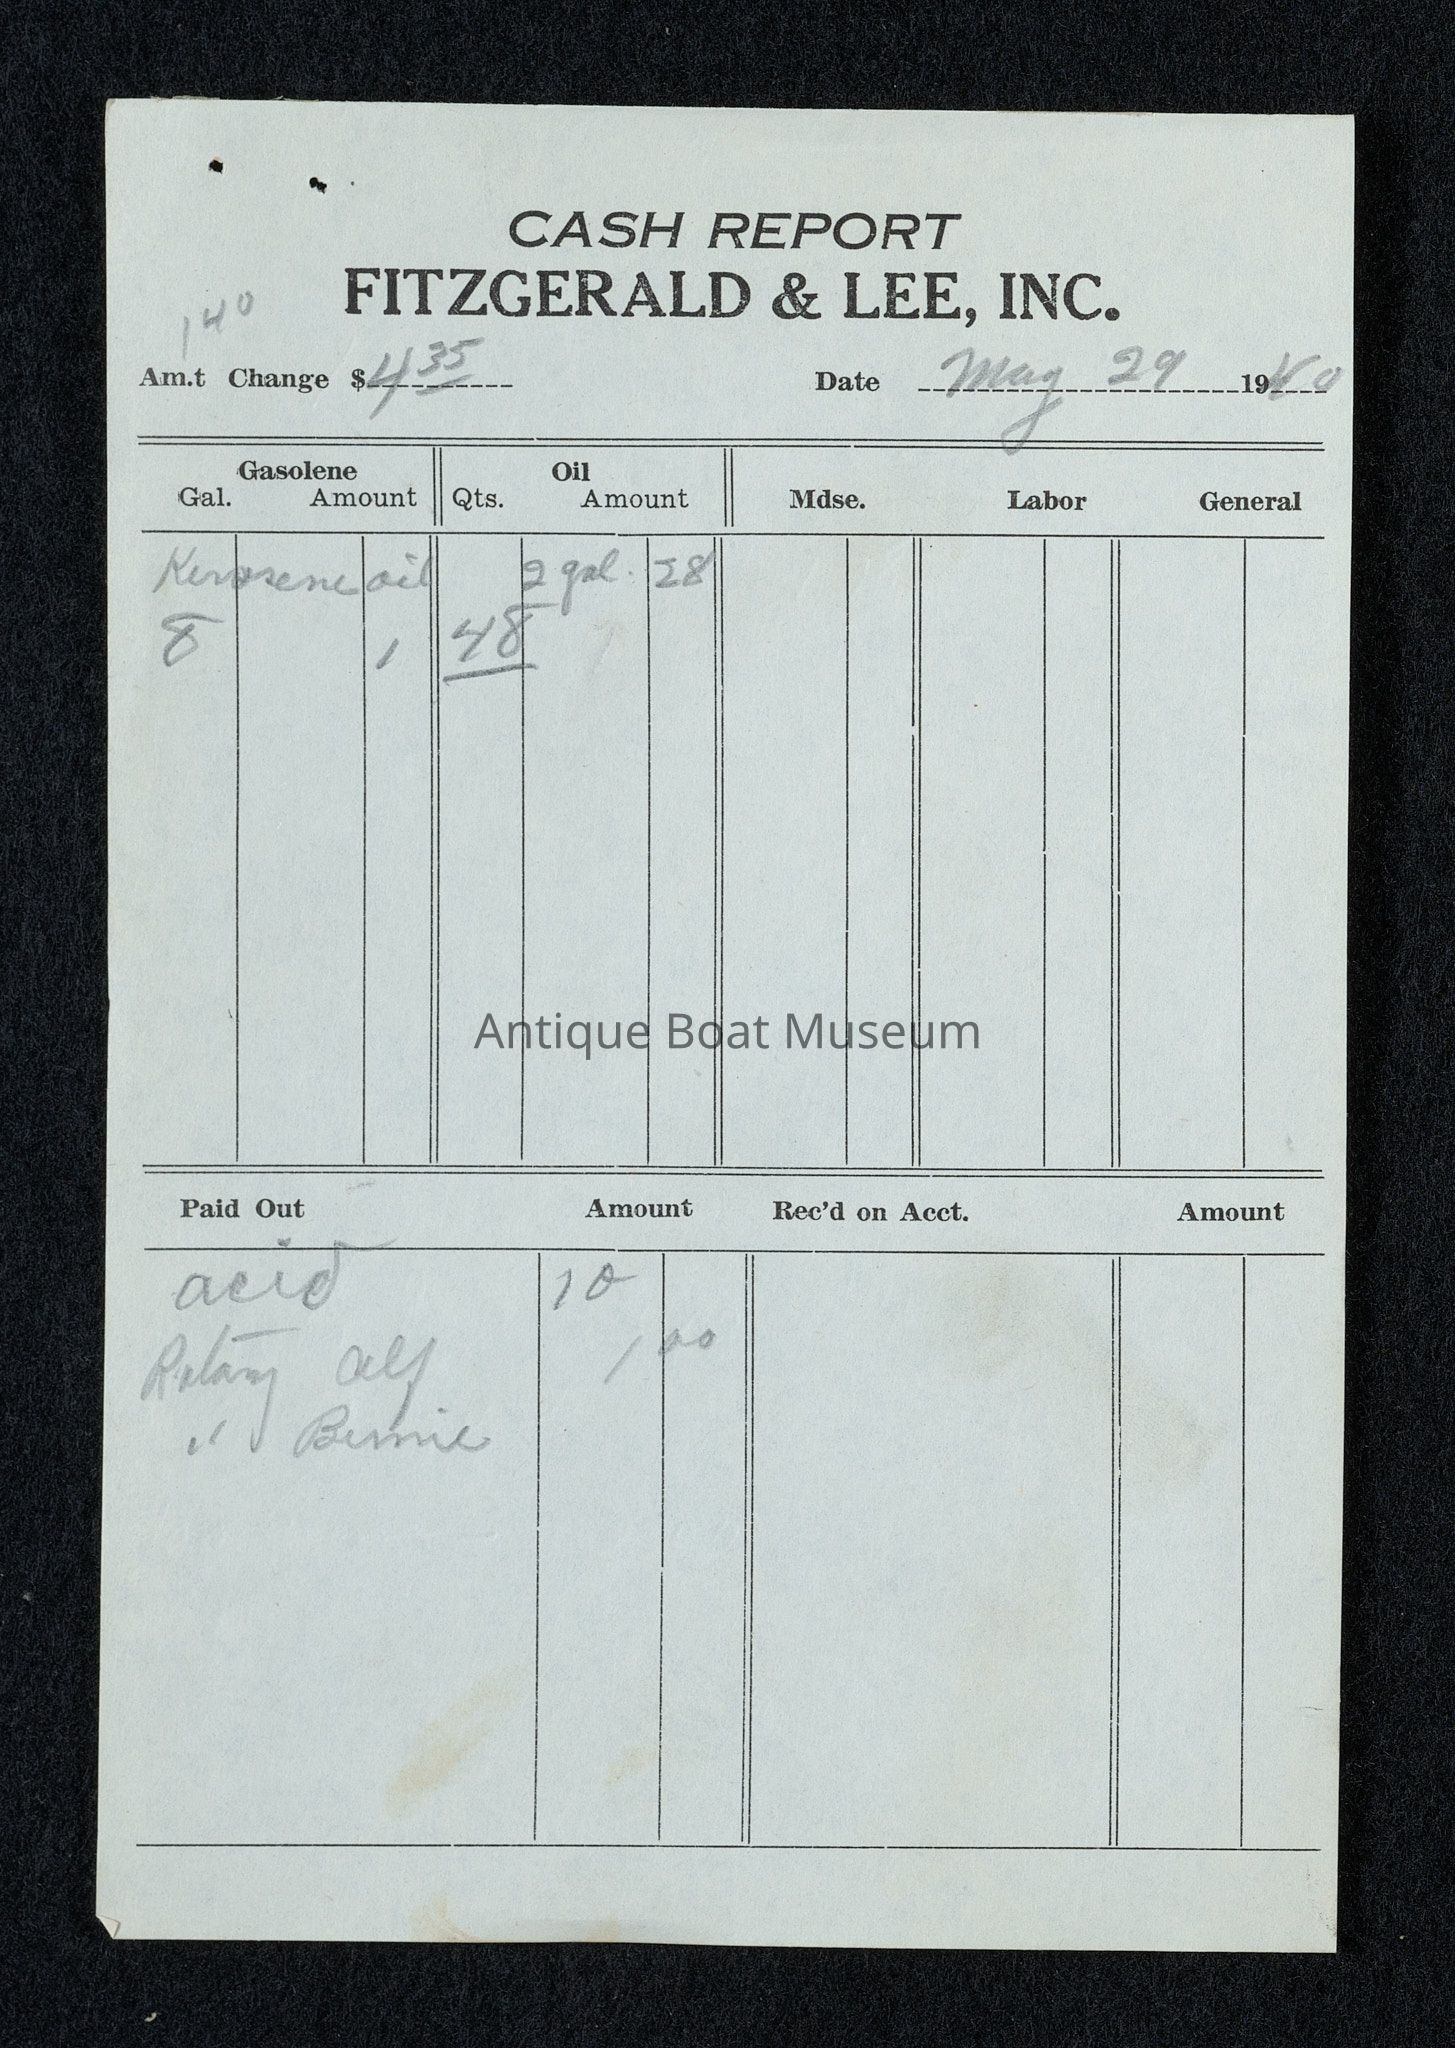 CASH REPORT
FITZGERALD & LEE, INC.
140
Am.t Change $ 4 35
Date May 29 1940
Gasolene Oil
Gal. Amount Qts. Amount Mdse. Labor General
Kerosene oil 2 gal. 28
8 1 48
Antique Boat Museum
Paid Out Amount Rec'd on Acct. Amount
acid 10
Rotary Alf 1,00
" Bernie